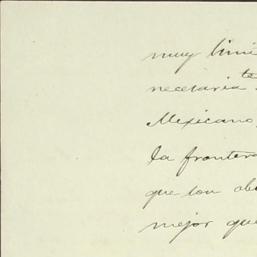 muy limi
necesaria
Mexicano,
la frontera
que con ob
mejor que